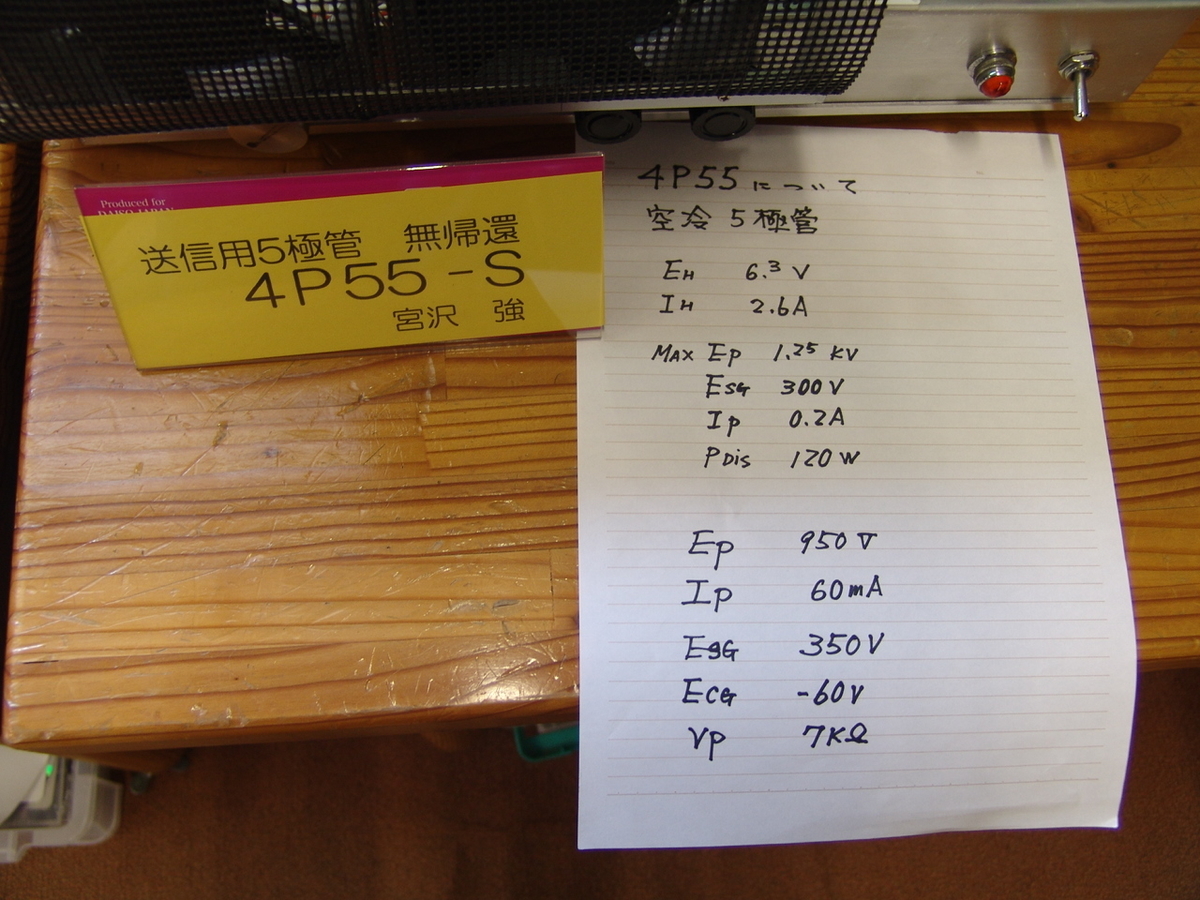 Produced for
DAISO JAPAN
送信用5極管　無帰還
4P55-S
宮沢　強
4P55について
空冷5極管
EH 6.3V
IH 2.6A
MAX Ep 1.25KV
ESG 300V
Ip 0.2A
PDis 120W
Ep 950V
Ip 60mA
ESG 350V
ECG -60V
Vp 7KΩ